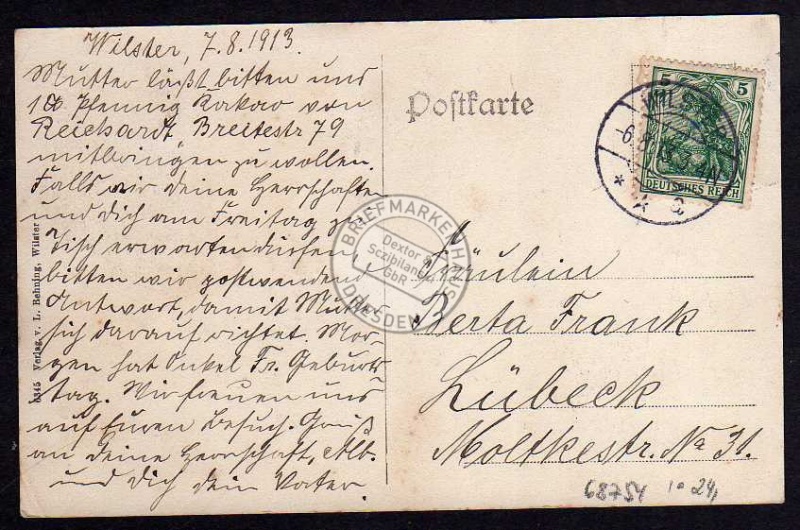 Wilster, 7.8.1913.
Mutter läßt bitten uns
10 Pfennig Kakao von
Reichardt Breitestr 79
mitbringen zu wollen.
Falls wir deine Herrschaften
und dich am Freitag zu
Tisch erwarten dürfen,
bitten wir postwendend
Antwort, damit Mutter
sich darauf richtet. Mor-
gen hat Onkel Fr. Geburts-
tag. Wir freuen uns
auf Euren Besuch. Gruß
an deine Herrschaft,
und dich dein Vater.
5345 Verlag v. L. Behning, Wilster
Postkarte
5 5
DEUTSCHES REICH
WILSTER
BRIEFMARKENHAUS
Dextor &
Sczibilanski
GbR
DRESDEN
Fräulein
Berta Frank
Lübeck
Moltkestr. No 31.
68754